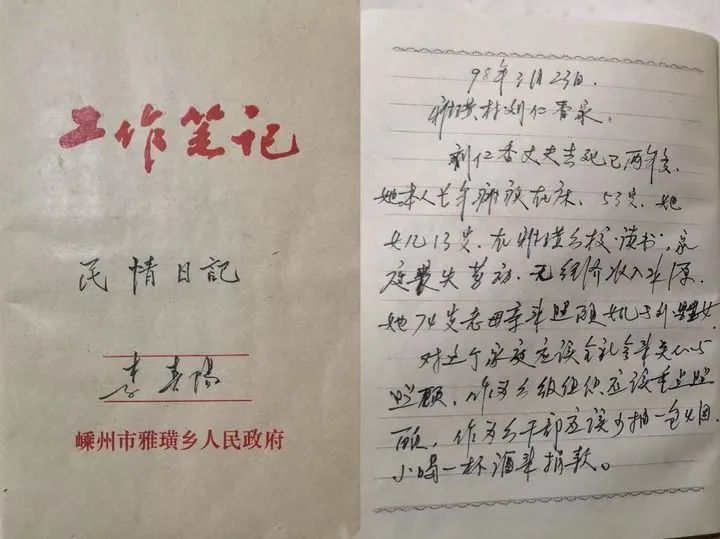 工作笔记
民情日記
李春陽
嵊州市雅璜乡人民政府
98年3月23日.
雅璜村刘仁香泉:
刘仁香丈夫去死已两年多,
她本人长年瘫痪在床. 53岁. 她
女儿13岁. 在雅璜乡校读书, 家
庭丧失劳动. 无经济收入来源.
她74岁老母亲来照顾女儿与
对这个家庭应该全社会来关心与
照顾. 作为乡级组织应该重点照
顾. 作为乡干部应该少抽一包烟
小喝一杯酒来捐款。